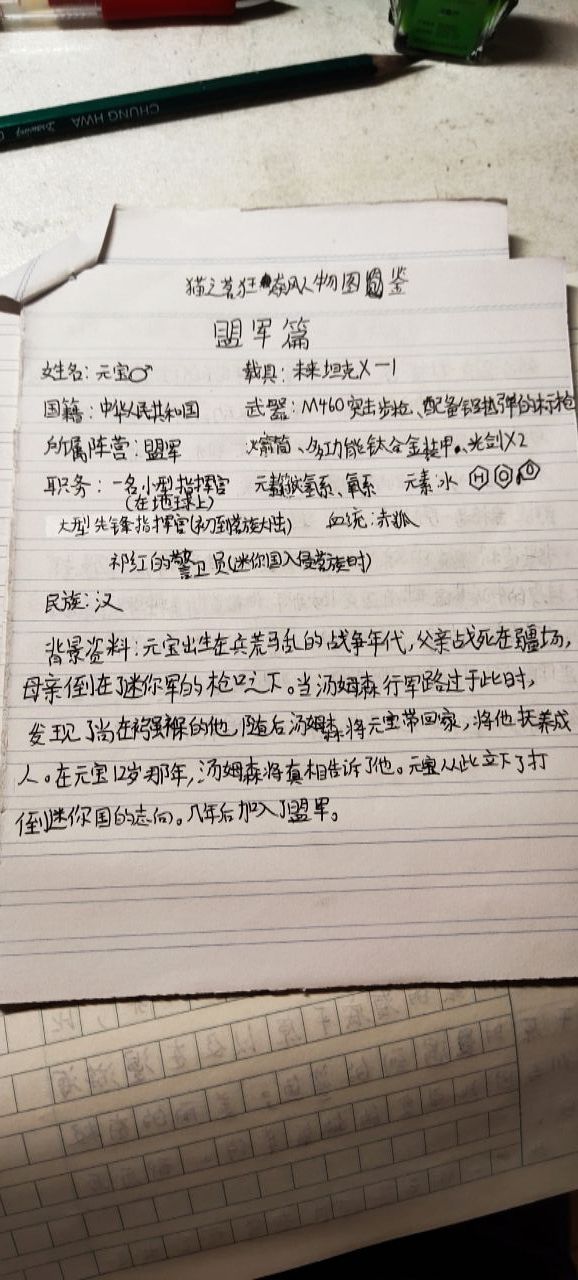 CHUNG HWA
Drawing
猫之茗狂飙人物图鉴
盟军篇
姓名：元宝♂ 载具：未来坦克X-1
国籍：中华人民共和国 武器：M460突击步枪、配备铝热弹的标枪
所属阵营：盟军 火箭筒、多功能钛合金装甲、光剑X2
职务：一名小型指挥官 元素：氢系、氧系 元素：水 H O
(在地球上)
大型先锋指挥官(初至茗族大陆) 血统：赤狐
祁红的警卫员(迷你国入侵茗族时)
民族：汉
背景资料：元宝出生在兵荒马乱的战争年代，父亲战死在疆场，
母亲倒在了迷你军的枪口之下。当汤姆森行军路过于此时，
发现了尚在襁褓的他，随后汤姆森将元宝带回家，将他抚养成
人。在元宝12岁那年，汤姆森将真相告诉了他。元宝从此立下了打
倒迷你国的志向。几年后加入了盟军。